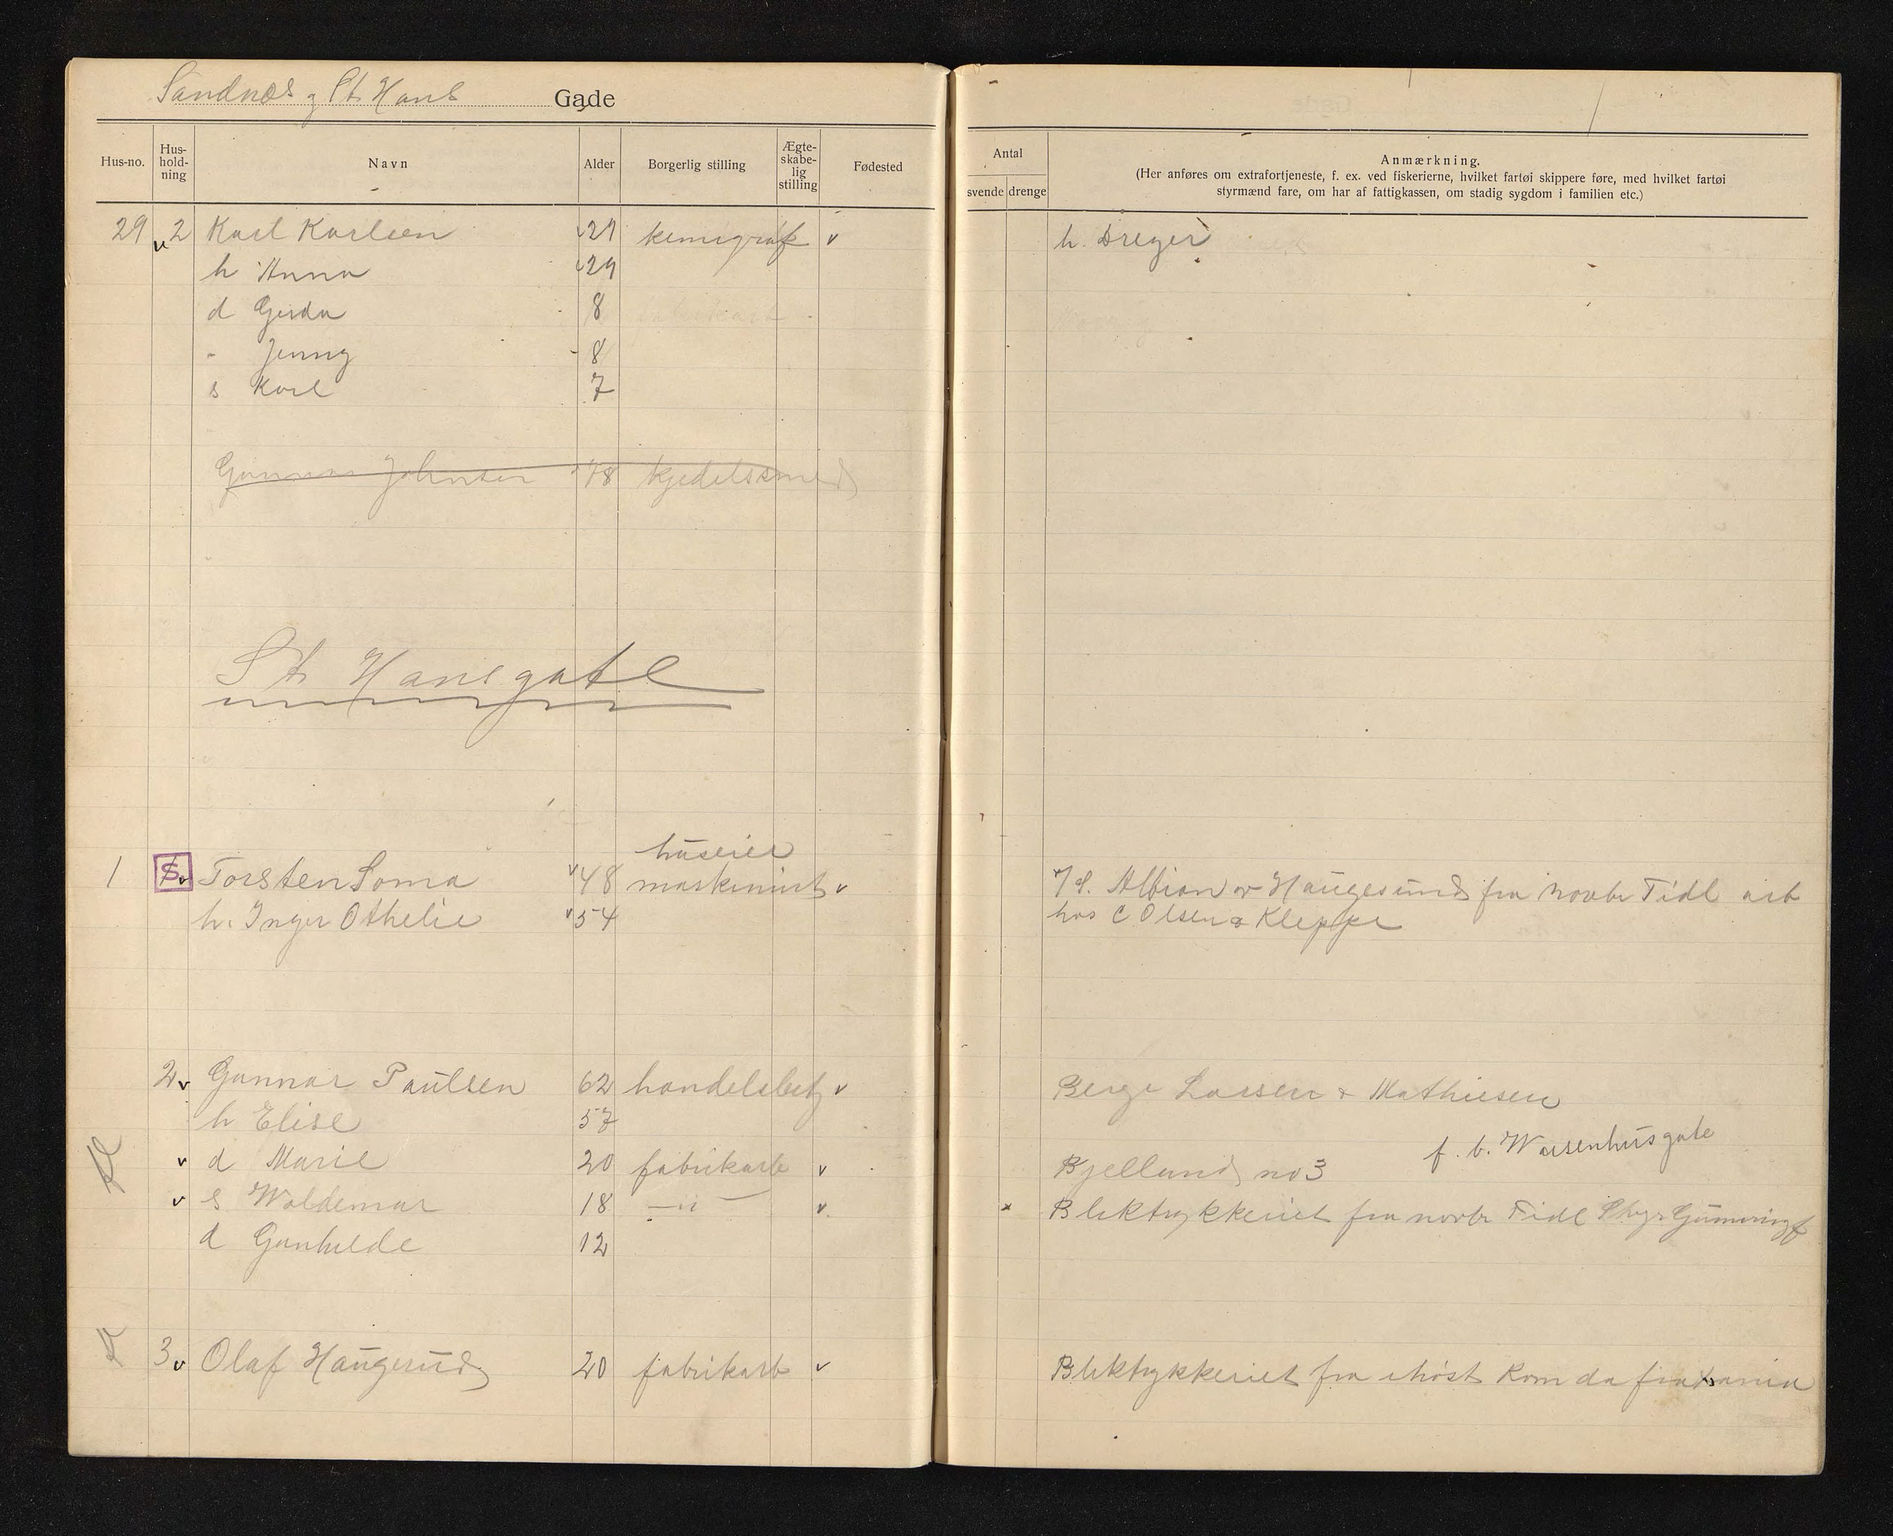 Sandnæs g St Hans Gade
Hus-no. Hus-hold-ning Navn Alder Borgerlig stilling Ægte-skabe-lig stilling Fødested
Antal
svende drenge
Anmærkning.
(Her anføres om extrafortjeneste, f. ex. ved fiskerierne, hvilket fartøi skippere føre, med hvilket fartøi
styrmænd fare, om har af fattigkassen, om stadig sygdom i familien etc.)
29 2 Karl Karlsen 29 kemigraf h. Dreyer
h Anna 29
d Gerda 8
" Jenny 8
s Karl 7
Gunnar Johnsen 48 kjedelsmed
St Hansgate
huseier
1 Torsten Soma 48 maskinist Albion av Haugesund fra novbr Tidl arb
h. Inger Othelie 54 hos C Olsen & Kleppe
2 Gunnar Paulsen 62 handelsbetj Berge Larsen & Mathiesen
h Elise 57
f. b. Waisenhusgate
d Marie 20 fabrikarb Bjelland no 3
s Waldemar 18 —"— Bliktrykkeriet fra novbr Tidl
d Gunhilde 12
3 Olaf Haugerud 20 fabrikarb Bliktrykkeriet fra ihøst kom da fra